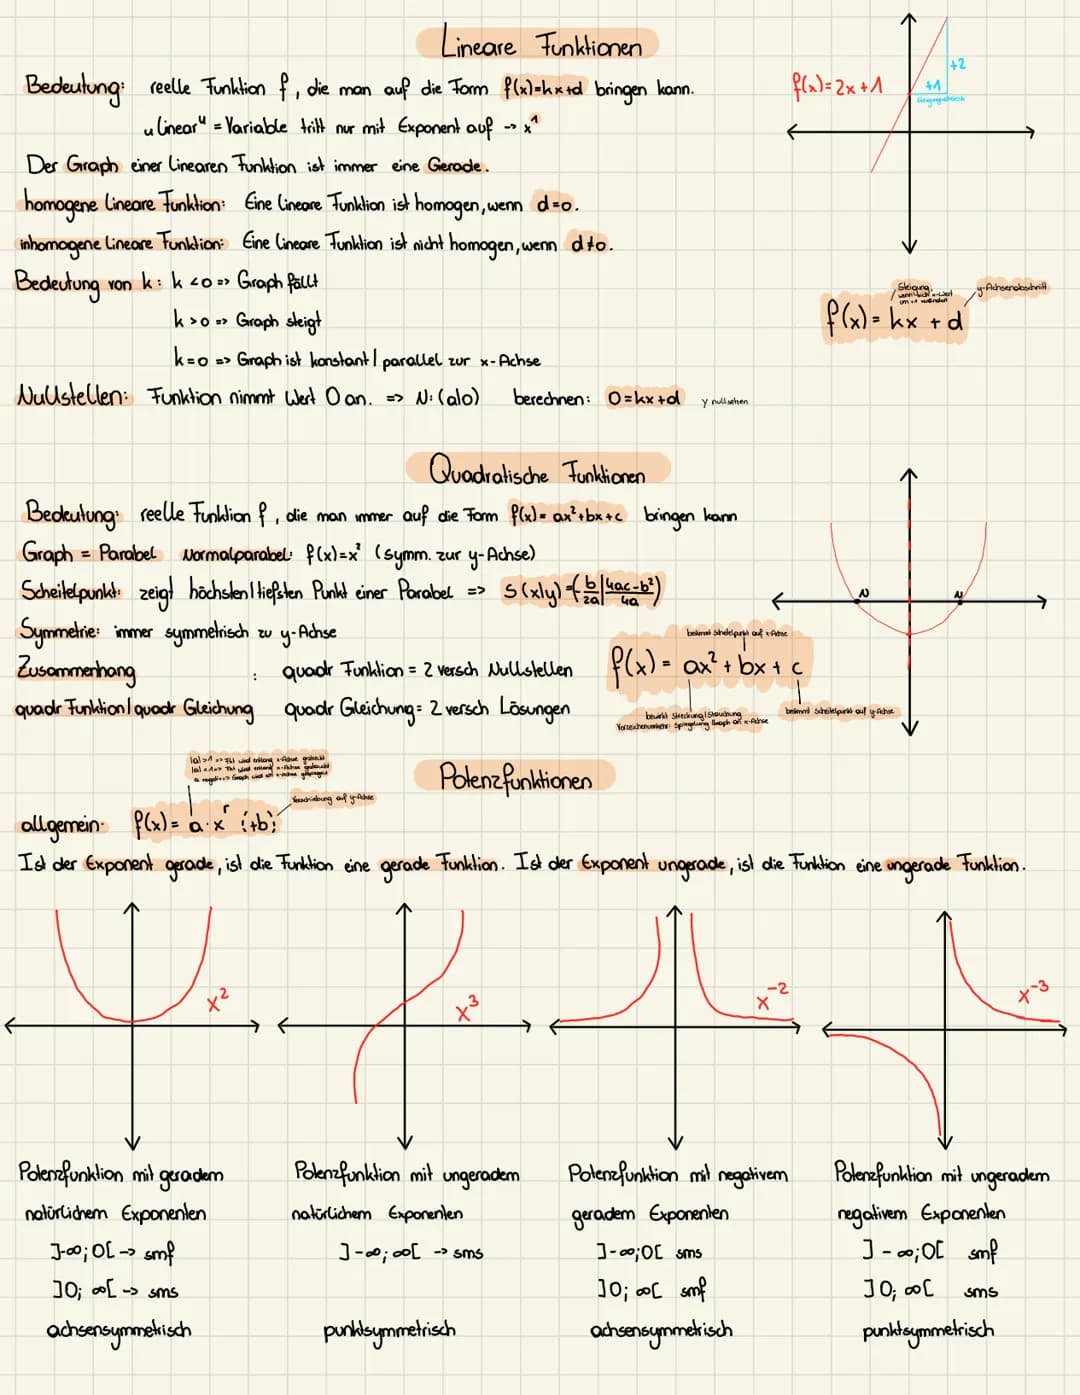 Lineare Funktionen
Bedeutung: reelle Funktion f, die man auf die Form f(x)=kx+d bringen kann.
"Linear" = Variable tritt nur mit Exponent auf -> x¹
Der Graph einer linearen Funktion ist immer eine Gerade.
homogene lineare Funktion: Eine lineare Funktion ist homogen, wenn d=0.
inhomogene lineare Funktion: Eine lineare Funktion ist nicht homogen, wenn d≠0.
Bedeutung von k: k<0 => Graph fällt
k>0 => Graph steigt
k=0 => Graph ist konstant / parallel zur x-Achse
Nullstellen: Funktion nimmt Wert 0 an. => N: (a|0) berechnen: 0=kx+d y nullsetzen
f(x)=2x+1
+2
+1
Steigung,
wenn sich x-Wert
um +1 verändert
y-Achsenabschnitt
f(x)= kx + d
Quadratische Funktionen
Bedeutung: reelle Funktion f, die man immer auf die Form f(x)= ax²+bx+c bringen kann
Graph = Parabel Normalparabel: f(x)=x² (symm. zur y-Achse)
Scheitelpunkt: zeigt höchsten/tiefsten Punkt einer Parabel => S(x|y)=(b/2a|4ac-b²/4a)
Symmetrie: immer symmetrisch zu y-Achse
Zusammenhang : quadr Funktion = 2 versch Nullstellen
quadr Funktion/quadr Gleichung quadr Gleichung= 2 versch Lösungen
N
N
bestimmt Scheitelpunkt auf x-Achse
f(x) = ax² + bx + c
bewirkt Streckung/Stauchung
Vorzeichenumkehr: Spiegelung Graph an x-Achse
bestimmt Scheitelpunkt auf y-Achse
Potenzfunktionen
Verschiebung auf y-Achse
allgemein: f(x)= a·x^r (+b)
Ist der Exponent gerade, ist die Funktion eine gerade Funktion. Ist der Exponent ungerade, ist die Funktion eine ungerade Funktion.
x²
x³
x⁻²
x⁻³
Potenzfunktion mit geradem
natürlichem Exponenten
]-∞;0[ -> smf
]0; ∞[ -> sms
achsensymmetrisch
Potenzfunktion mit ungeradem
natürlichem Exponenten
]-∞; ∞[ -> sms
punktsymmetrisch
Potenzfunktion mit negativem
geradem Exponenten
]-∞;0[ sms
]0; ∞[ smf
achsensymmetrisch
Potenzfunktion mit ungeradem
negativem Exponenten
]-∞;0[ smf
]0; ∞[ sms
punktsymmetrisch